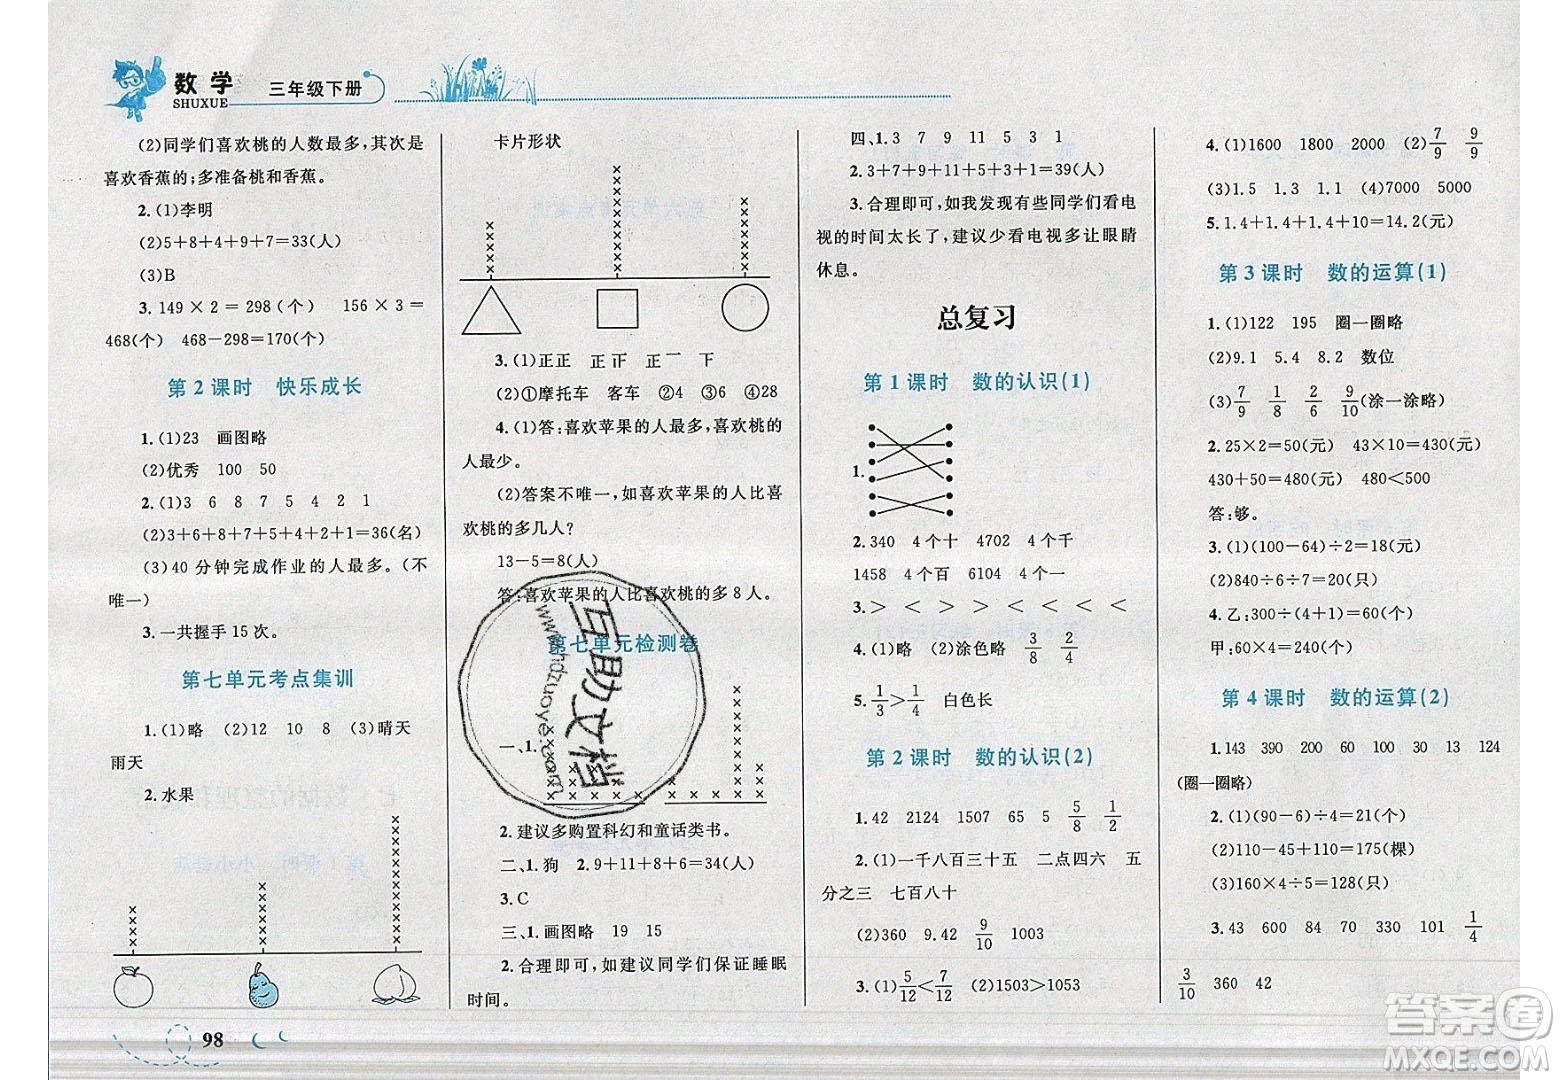 数学
SHUXUE
三年级下册
(2)同学们喜欢桃的人数最多,其次是
喜欢香蕉的;多准备桃和香蕉。
2.(1)李明
(2)5+8+4+9+7=33(人)
(3)B
3.149×2=298(个) 156×3=
468(个) 468-298=170(个)
第2课时 快乐成长
1.(1)23 画图略
(2)优秀 100 50
2.(1)3 6 8 7 5 4 2 1
(2)3+6+8+7+5+4+2+1=36(名)
(3)40分钟完成作业的人最多。(不
唯一)
3.一共握手15次。
第七单元考点集训
1.(1)略 (2)12 10 8 (3)晴天
雨天
2.水果
98
卡片形状
3.(1)正正 正正 正一 下
(2)①摩托车 客车 ②4 ③6 ④28
4.(1)答:喜欢苹果的人最多,喜欢桃的
人最少。
(2)答案不唯一,如喜欢苹果的人比喜
欢桃的多几人?
13-5=8(人)
答:喜欢苹果的人比喜欢桃的多8人。
第七单元检测卷
一、1.
2.建议多购置科幻和童话类书。
二、1.狗 2.9+11+8+6=34(人)
3.C
三、1.画图略 19 15
2.合理即可,如建议同学们保证睡眠
时间。
四、1.3 7 9 11 5 3 1
2.3+7+9+11+5+3+1=39(人)
3.合理即可,如我发现有些同学们看电
视的时间太长了,建议少看电视多让眼睛
休息。
总复习
第1课时 数的认识(1)
1.
2.340 4个十 4702 4个千
1458 4个百 6104 4个一
3.> < > < < < < <
4.(1)略 (2)涂色略 3/8 2/4
5.1/3>1/9 白色长
第2课时 数的认识(2)
1.42 2124 1507 65 5 5/8 1/2
2.(1)一千八百三十五 二点四六 五
分之三 七百八十
(2)360 9.42 9/10 1003
3.(1)5/12<7/12 (2)1503>1053
4.(1)1600 1800 2000 (2)7/9 9/9
(3)1.5 1.3 1.1 (4)7000 5000
5.1.4+1.4+1.4+10=14.2(元)
第3课时 数的运算(1)
1.(1)122 195 圈一圈略
(2)9.1 5.4 8.2 数位
(3)7/9 1/8 2/6 9/10(涂一涂略)
2.25×2=50(元) 43×10=430(元)
430+50=480(元) 480<500
答:够。
3.(1)(100-64)÷2=18(元)
(2)840÷6÷7=20(元)
4.乙:300÷(4+1)=60(元)
甲:60×4=240(元)
第4课时 数的运算(2)
1.143 390 200 400 30 13 124
(圈一圈略)
2.(1)(90-6)÷4=21(个)
(2)110-45+110=175(棵)
(3)160×4÷5=128(只)
3.43 600 84 70 330 101 1/4
3/10 360 42
互助文档
www.hdzuoye.com
答案圈
MXQE.COM